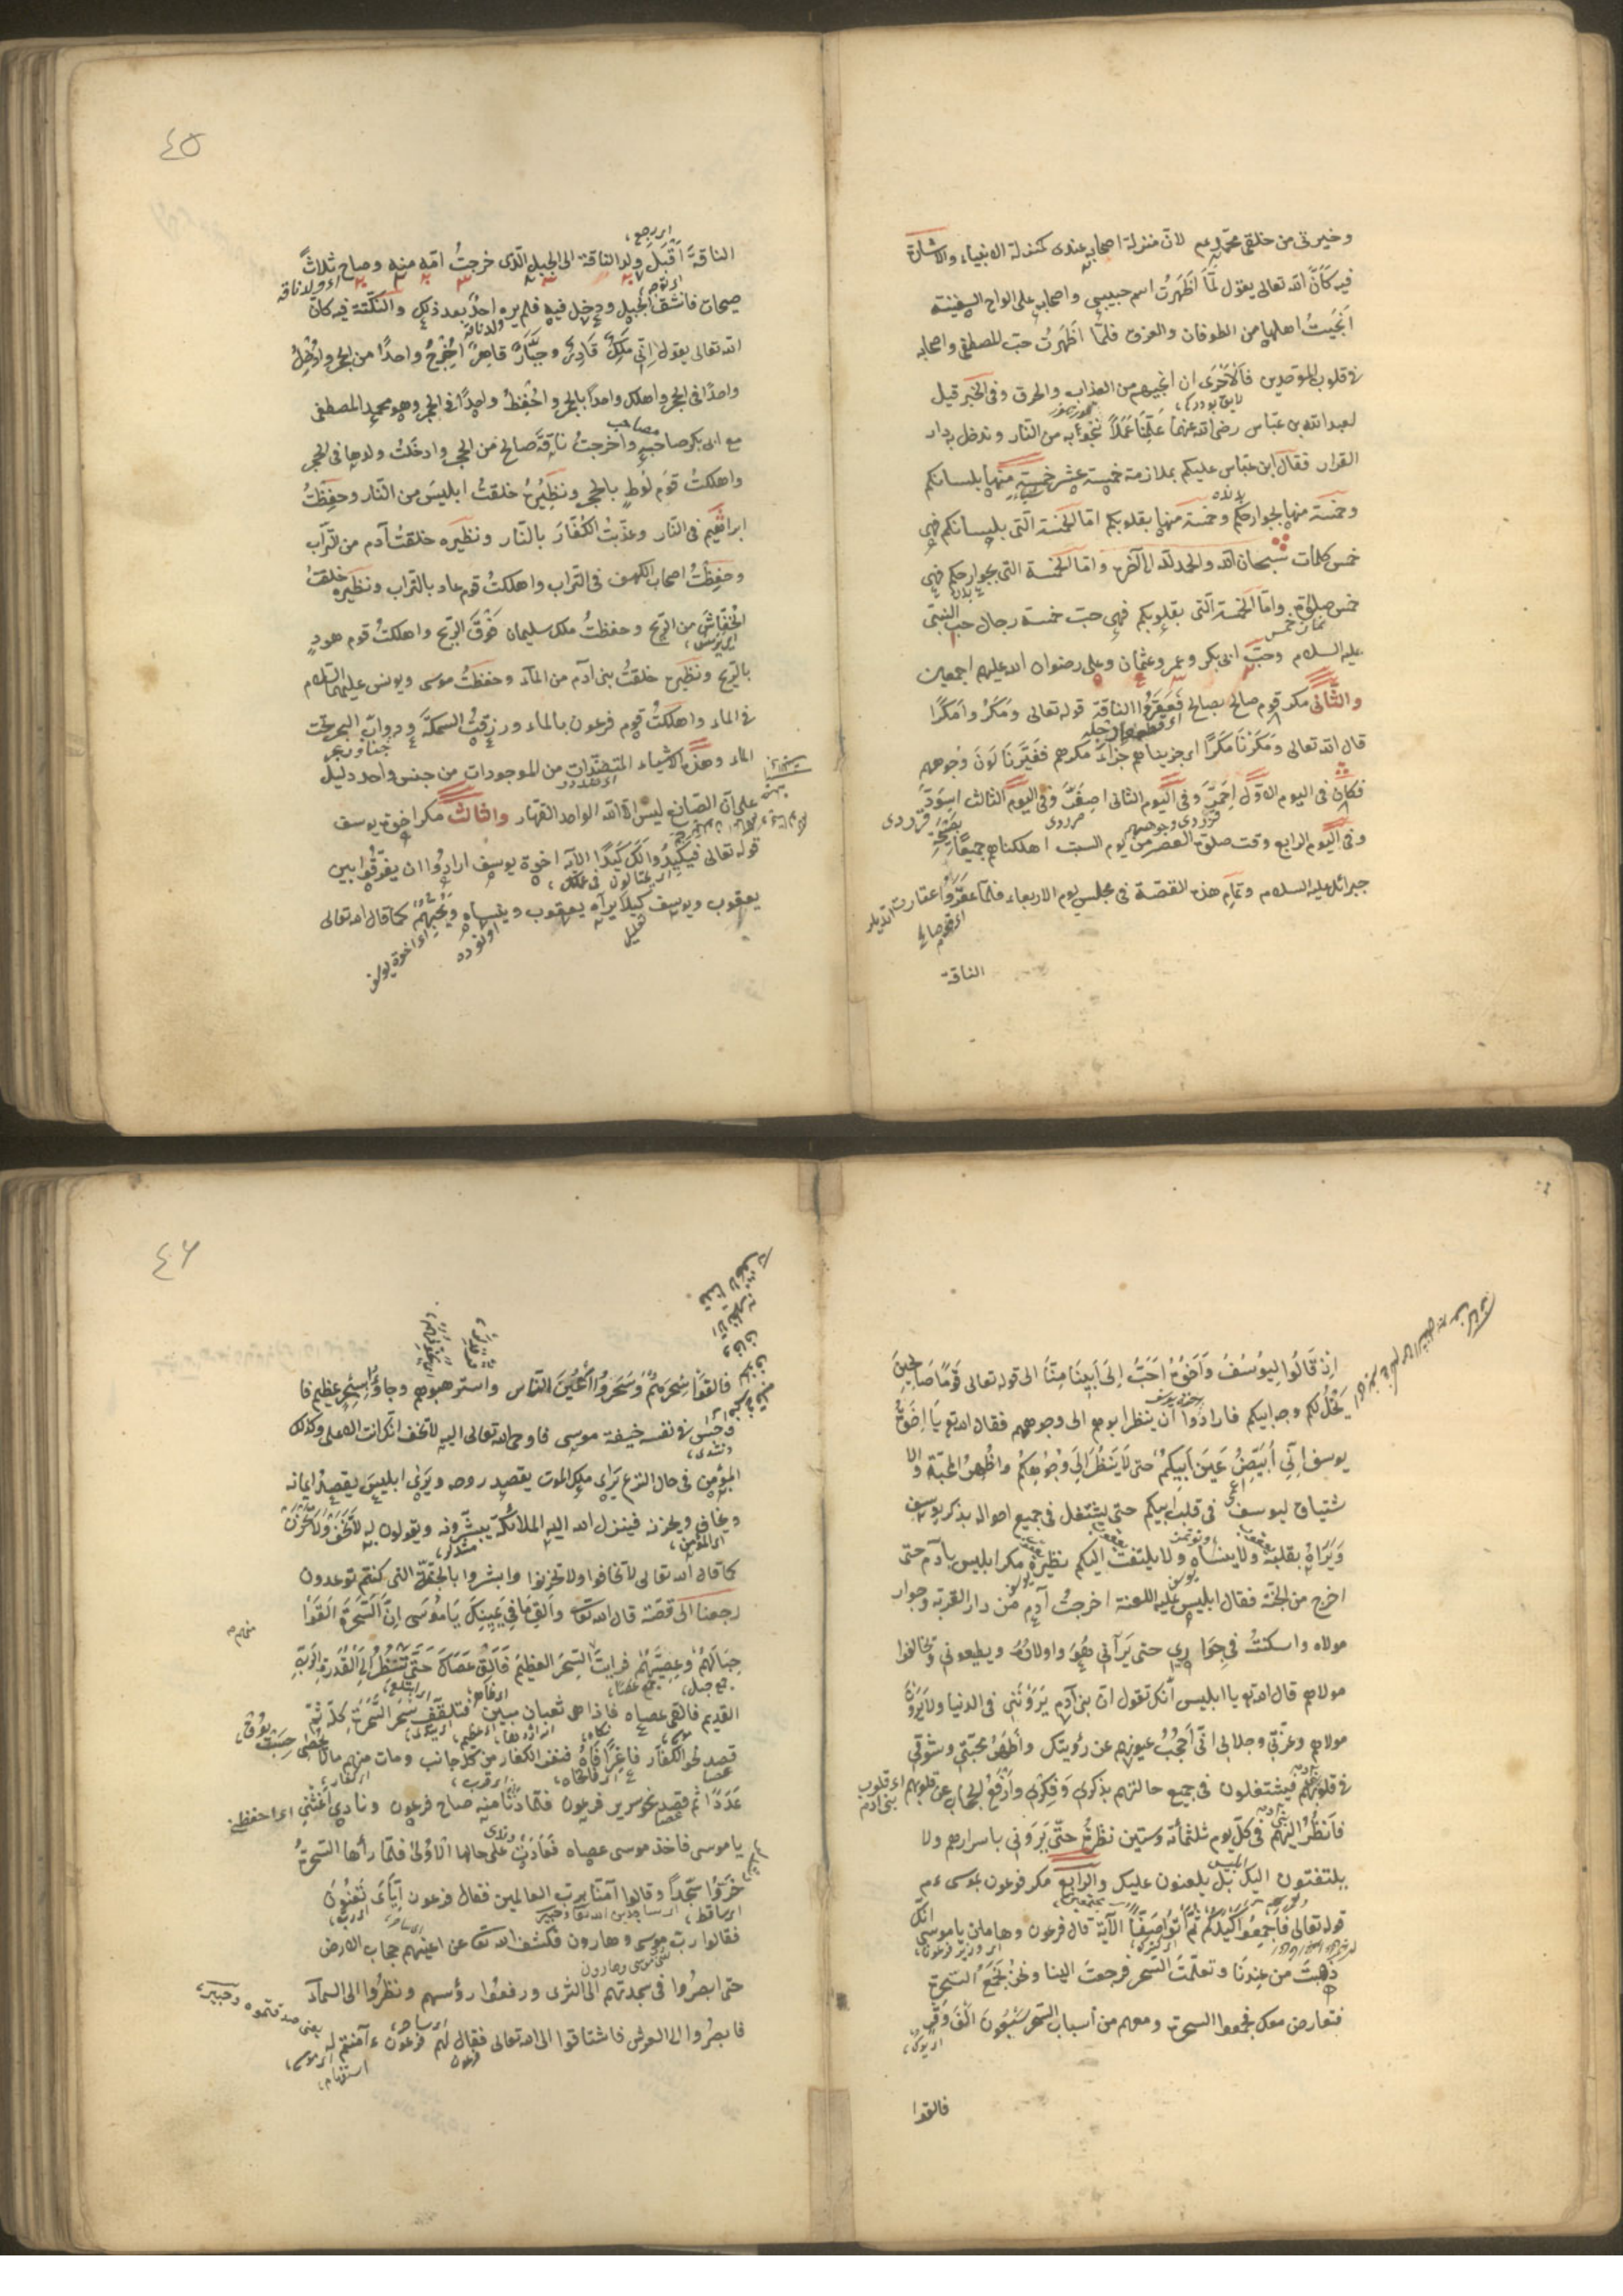 وخيرتى من خلقى محمد عم لان منزلة اصحابه عندى كمنزلة الانبياء والاشارة
فيه كأن الله تعالى يقول لما اظهرت اسم حبيبى واصحابه على الواح السفينة
انجيت اهلها من الطوفان والغرق فلما اظهرت حب المصطفى واصحابه
فى قلوب الموحدين فالاحرى ان انجيهم من العذاب والحرق وفى الخبر قيل
لعبد الله بن عباس رضى الله عنهما علمنا عملا ننجو به من النار وندخل به دار
القرار فقال ابن عباس عليكم بملازمة خمسة عشر خمسة منها بلسانكم
وخمسة منها بجوارحكم وخمسة منها بقلوبكم اما الخمسة التى بلسانكم فهى
خمس كلمات سبحان الله والحمد لله الى آخره واما الخمسة التى بجوارحكم فهى
خمس صلوة واما الخمسة التى بقلوبكم فهى حب خمسة رجال حب النبى
عليه السلام وحب ابى بكر وعمر وعثمان وعلى رضوان الله عليهم اجمعين
والثانى مكر قوم صالح بصالح فعقروا الناقة قوله تعالى ومكروا مكرا
قال الله تعالى ومكرنا مكرا اى جزيناهم جزاء مكرهم فغيرنا لون وجوههم
فكان فى اليوم الاول احمر وفى اليوم الثانى اصفر وفى اليوم الثالث اسود
وفى اليوم الرابع وقت صلوة العصر من يوم السبت اهلكناهم جميعا بصيحة
جبرائل عليه السلام وتمام هذه القصة فى مجلس يوم الاربعاء فلما عقروا
الناقة
٤٥
اى رجع
الناقة اقبل ولد الناقة الى الجبل الذى خرجت امه منه وصاح ثلاث
صيحات فانشق الجبل ودخل فيه فلم يره احد بعد ذلك والنكتة فيه كان
الله تعالى يقول انى ملك قادر وجبار قاهر اخرج واحدا من الحجر وادخل
واحدا فى الحجر واهلك واحدا بالحجر واحفظ واحدا فى الحجر وهو محمد المصطفى
مع ابى بكر صاحبه واخرجت ناقة صالح من الحجر وادخلت ولدها فى الحجر
واهلكت قوم لوط بالحجر ونظيره خلقت ابليس من النار وحفظت
ابراهيم فى النار وعذبت الكفار بالنار ونظيره خلقت آدم من تراب
وحفظت اصحاب الكهف فى التراب واهلكت قوم عاد بالتراب ونظيره خلقت
الخفاش من الريح وحفظت ملك سليمان فوق الريح واهلكت قوم هود
بالريح ونظيره خلقت بنى آدم من الماء وحفظت موسى ويونس عليهما السلام
فى الماء واهلكت قوم فرعون بالماء ورزقت السمكة ودواب البحر تحت
الماء وهذه الاشياء المتضدات من الموجودات من جنس واحد دليل
على ان الصانع ليس الا الله الواحد القهار والثالث مكر اخوة يوسف
قوله تعالى فيكيدوا لك كيدا الآية اخوة يوسف ارادوا ان يفرقوا بين
يعقوب ويوسف كيلا يراه يعقوب وينساه ويحبهم كما قال الله تعالى
اذ قالوا ليوسف واخوه احب الى ابينا منا الى قوله تعالى قوما صالحين
يخل لكم وجه ابيكم فارادوا ان ينظر ابوهم الى وجوههم فقال الله تع يا اخوة
يوسف انى ابيض عين ابيكم حتى لا ينظر الى وجوهكم واظهر المحبة والا
شتياق ليوسف فى قلب ابيكم حتى يشتغل فى جميع احواله بذكر يوسف
ويراه بقلبه ولا ينساه ولا يلتفت اليكم نظيره مكر ابليس بآدم حتى
اخرج من الجنة فقال ابليس عليه اللعنة اخرجت آدم من دار القربة وجوار
مولاه واسكنت فى جوارى حتى يرآنى هو واولاده ويطيعونى وتخالفوا
مولاهم قال الله تع يا ابليس انك تقول ان بنى آدم يروننى فى الدنيا ولا يرون
مولاهم وعزتى وجلالى انى احجب عيونهم عن رؤيتك واظهر محبتى وشوقى
فى قلوبهم فيشتغلون فى جميع حالتهم بذكرى وفكرى وارفع الحجاب عن قلوبهم
فانظر اليهم فى كل يوم ثلثمائة وستين نظرة حتى يرونى باسرارهم ولا
يلتفتون اليك بل يلعنون عليك والرابع مكر فرعون بموسى عم
قوله تعالى فاجمعوا كيدكم ثم ائتوا صفا الآية قال فرعون وهامان يا موسى انك
ذهبت من عندنا وتعلمت السحر فرجعت الينا ونحن نجمع السحرة
فتعارض معك فجمعوا السحرة ومعهم من اسباب السحر سبعون الف وقر
فالقوا
٤٦
فالقوا سحرهم وسحروا اعين الناس واسترهبوهم وجاؤا بسحر عظيم فا
وجس فى نفسه خيفة موسى فاوحى الله تعالى اليه لا تخف انك انت الاعلى وكذلك
المؤمن فى حال النزع يرى ملك الموت يقصد روحه ويرى ابليس يقصد ايمانه
ويخاف ويحزن فينزل الله اليه الملائكة يبشرونه ويقولون له لا تخف ولا تحزن
كما قال الله تعالى لا تخافوا ولا تحزنوا وابشروا بالجنة التى كنتم توعدون
رجعنا الى قصة قال الله تعا والق ما فى يمينك يا موسى ان السحرة القوا
حبالهم وعصيهم فرايت السحر العظيم فالق عصاك حتى تنظر الى القدرة الرب
القديم فالقى عصاه فاذا هى ثعبان مبين فتلقف سحر السحرة كله ثم
قصد نحو الكفار فاغرا فاه فنفر الكفار من كل جانب ومات منهم مالا يحصى
عددا ثم قصد نحو سرير فرعون فلما دنا منه صاح فرعون ونادى اغثنى اى احفظنى
يا موسى فاخذ موسى عصاه فعادت على حالها الاولى فلما رأها السحرة
خروا سجدا وقالوا آمنا برب العالمين فقال فرعون اياى تعنون
فقالوا رب موسى وهارون فكشف الله تعا عن اعينهم حجاب الارض
حتى ابصروا فى سجدتهم الى الثرى ورفعوا رؤسهم ونظروا الى السماء
فابصروا الى العرش فاشتاقوا الى الله تعالى فقال لهم فرعون ءآمنتم له